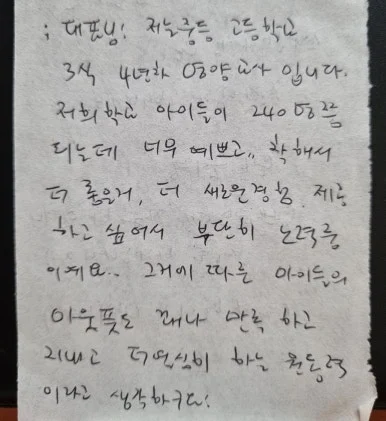 ; 대표님! 저는 중등 고등학교
3식 4년차 영양교사 입니다.
저희학교 아이들이 240명쯤
되는데 너무 예쁘고,, 착해서
더 좋은거, 더 새로운경험 제공
하고 싶어서 부단히 노력중
이예요.. 그거에 따른 아이들의
아웃풋도 꽤나 만족하고
지내고 더열심히 하는 원동력
이라고 생각하구요!